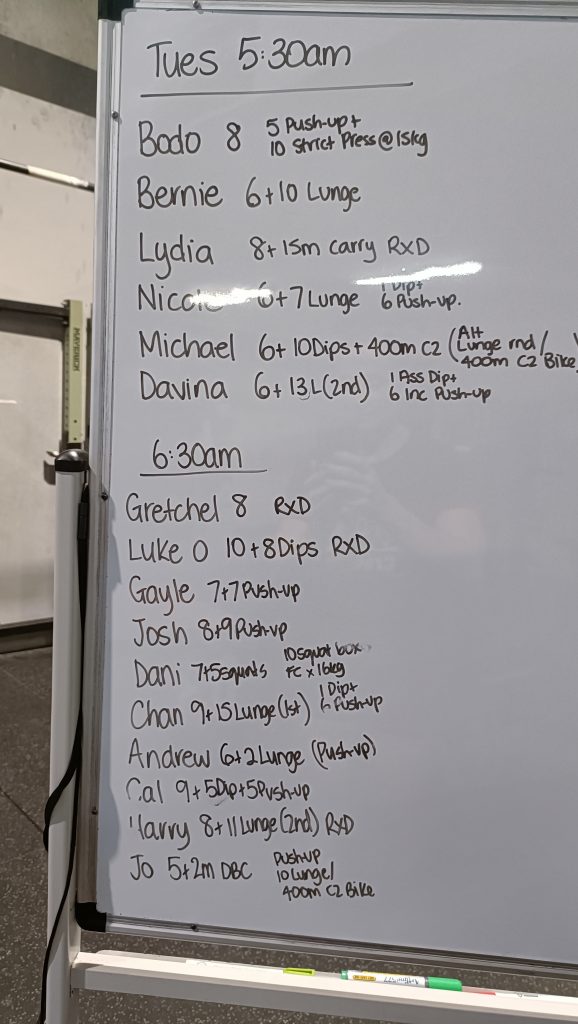 Tues 5:30am
Bodo 8 5 Push-up +
10 Strict Press @ 15kg
Bernie 6+10 Lunge
Lydia 8+15m carry RxD
6+7 Lunge 1 Dip+
6 Push-up.
Michael 6+10Dips+400m C2 (Alt
Lunge rnd/
400m C2 Bike
Davina 6+13L(2nd) 1 Ass Dip+
6 Inc Push-up
6:30am
Gretchel 8 RxD
Luke O 10+8Dips RxD
Gayle 7+7Push-up
Josh 8+9Push-up
Dani 7+5squats 10squat box
FC x 16kg
Chan 9+15Lunge(1st) 1 Dip+
6 Push-up
Andrew 6+2Lunge (Push-up)
Cal 9+5Dip+5Push-up
Harry 8+11Lunge(2nd) RxD
Jo 5+2m DBC Push-up
10Lunge/
400m C2 Bike
MAVERICK
Artline 577